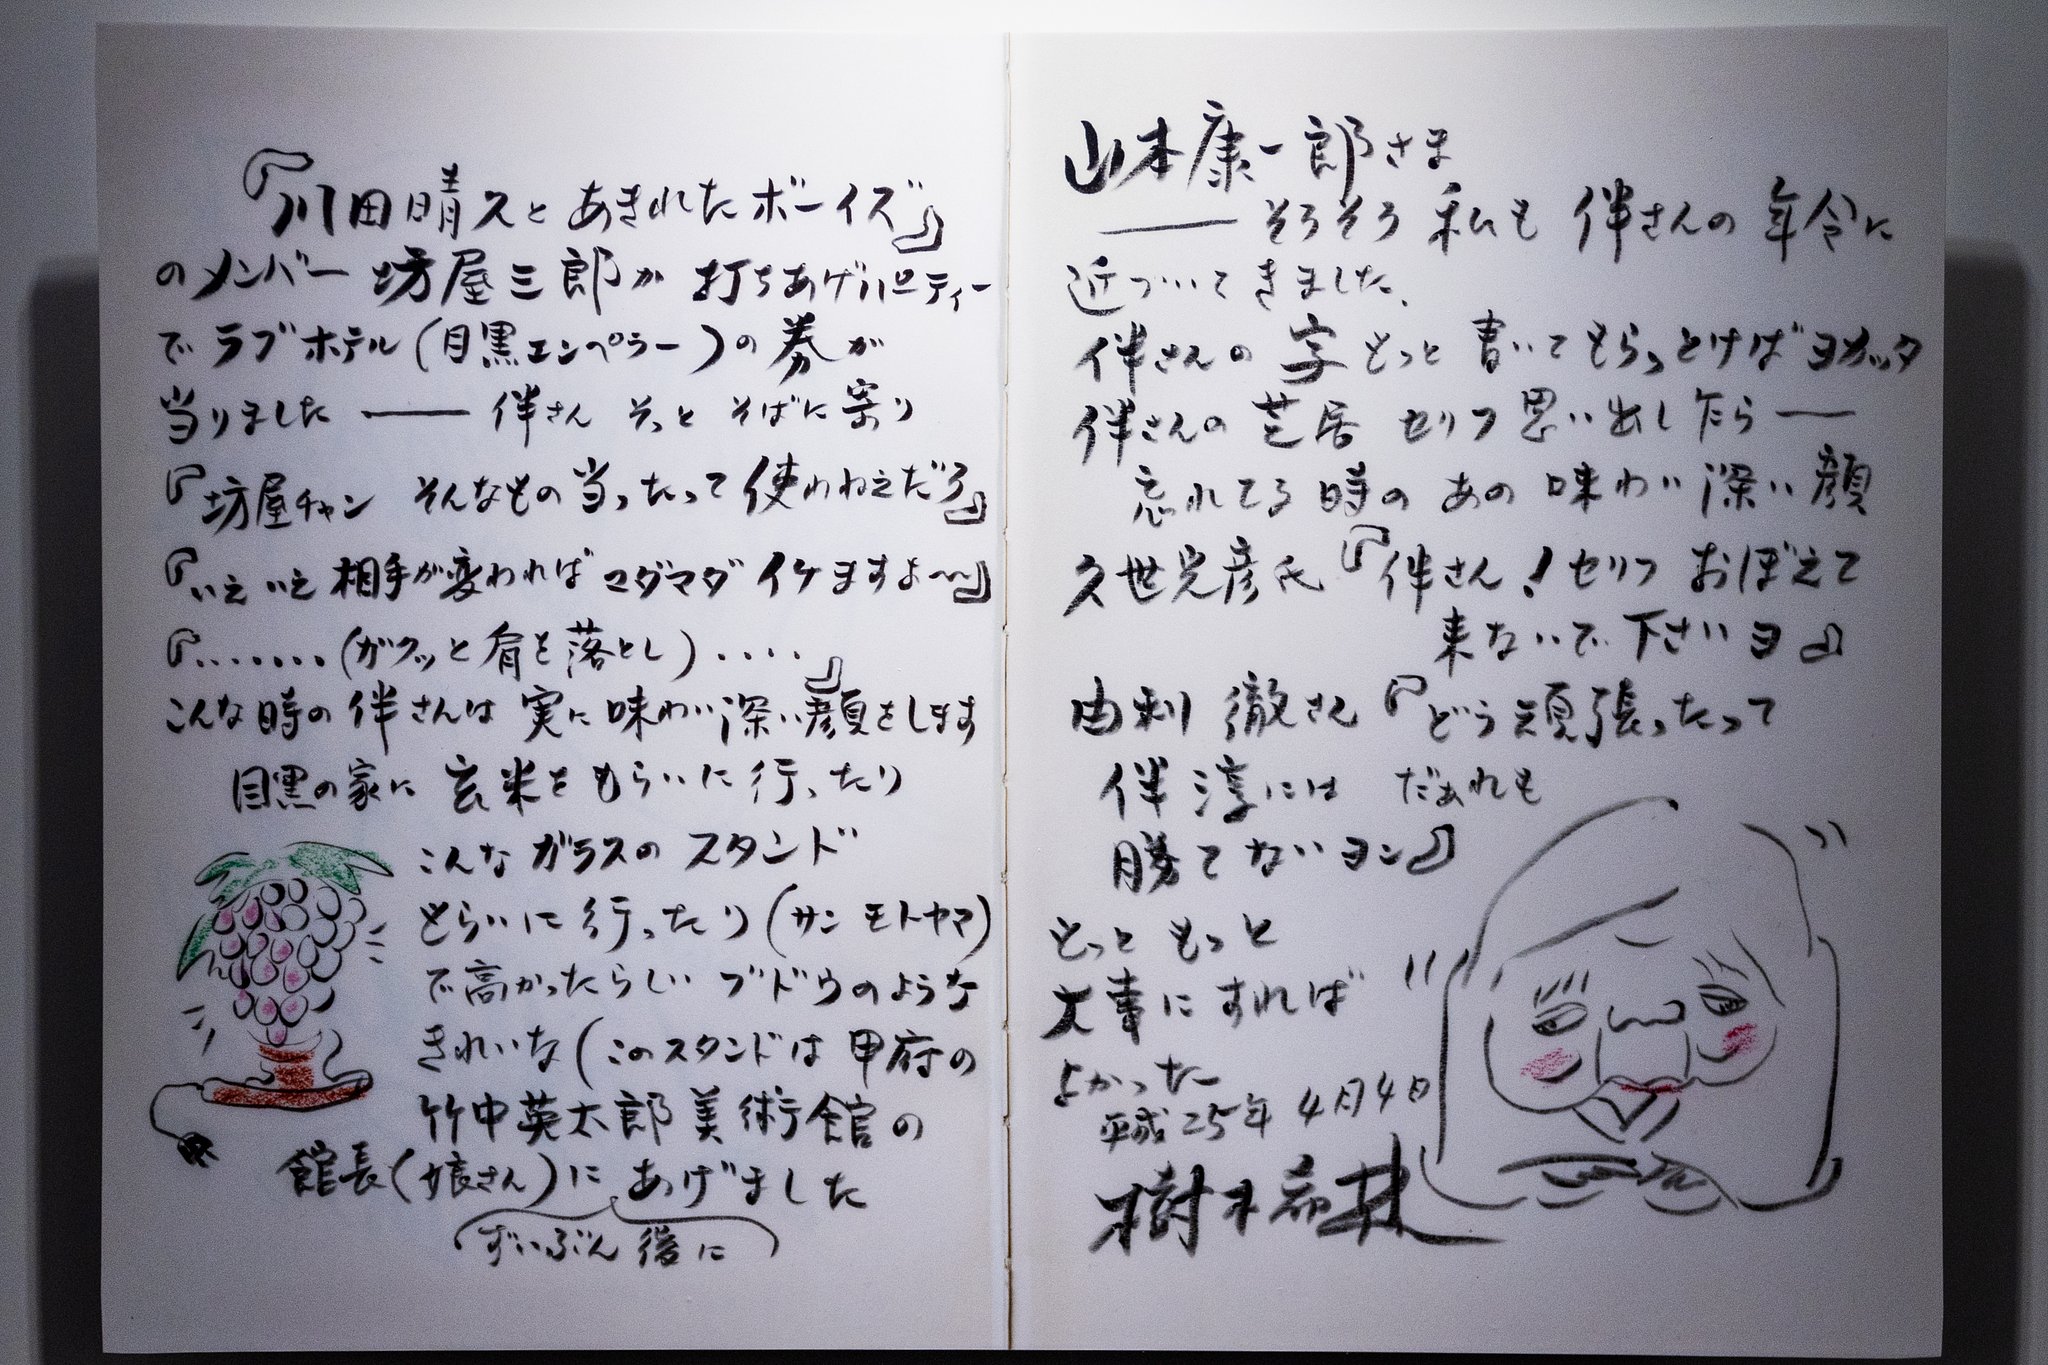 『川田晴久とあきれたボーイズ』
のメンバー 坊屋三郎が 打ちあげパーティー
で ラブホテル(目黒エンペラー)の 券が
当りました —— 伴さん そっと そばに寄り
『坊屋チャン そんなもの当ったって使わねえだろ』
『いえいえ 相手が変わればマダマダ イケますよ〜』
『.......(ガクッと肩を落とし)....』
こんな時の伴さんは 実に味わい深い顔をします
目黒の家に 玄米をもらいに行ったり
こんなガラスのスタンド
もらいに行ったり(サン モトヤマ)
で高かったらしい ブドウのような
きれいな(このスタンドは甲府の
竹中英太郎美術館の
館長(娘さん)に あげました
ずいぶん 後に
山本康一郎さま
—— そろそろ 私も 伴さんの 年令に
近づいてきました.
伴さんの 字 もっと 書いてもらっとけばヨカッタ
伴さんの 芝居 セリフ思い出したら——
忘れてる時の あの 味わい深い顔
久世光彦氏『伴さん!セリフ おぼえて
来ないで下さいヨ』
由利 徹さん『どう頑張ったって
伴淳には だぁれも
勝てないヨン』
もっと もっと
大事にすれば
よかったー
平成25年4月4日
樹木希林